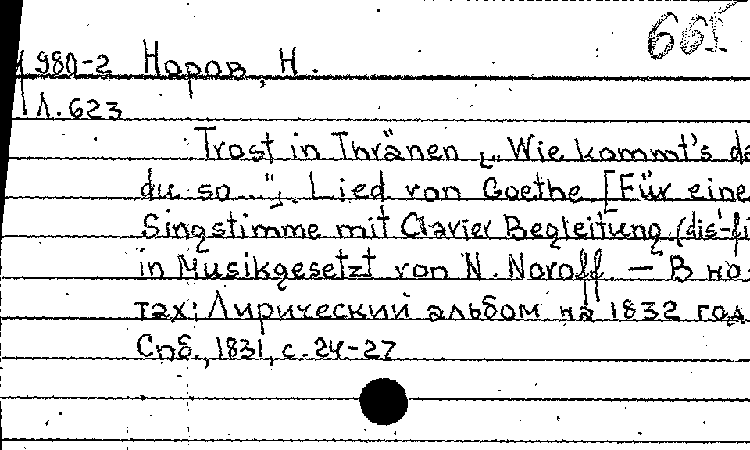 665
980-2 Норов, Н.
Л. 623
Trost in Thränen [„Wie kommt's da
du so..."]. Lied von Goethe [Für eine
Singstimme mit Clavier Begleitung (dis'-fi
in Musikgesetzt von N. Noroff. — В но-
тах: Лирический альбом на 1832 год
Спб., 1831, с. 24-27